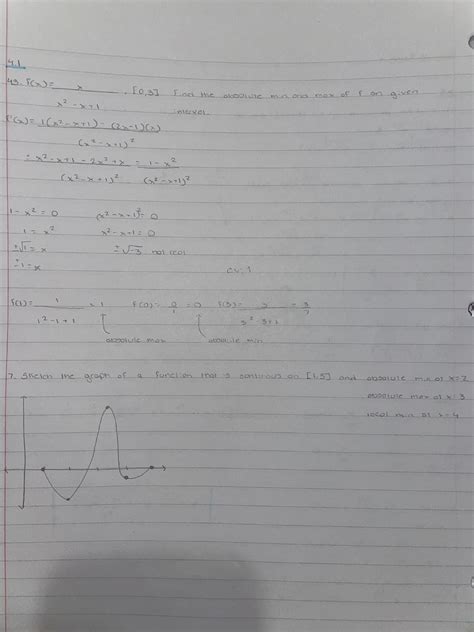 4.1
49. f(x) = x / x² - x + 1 , [0,3] find the absolute min and max of f on given
f'(x) = 1(x² - x + 1) - (2x - 1)(x) / (x² - x + 1)²
= x² - x + 1 - 2x² + x / (x² - x + 1)² = 1 - x² / (x² - x + 1)²
1 - x² = 0 (x² - x + 1)² = 0
1 = x² x² - x + 1 = 0
±√1 = x ±√-3 not real
± 1 = x c.v: 1
f(1) = 1 / 1² - 1 + 1 = 1 f(0) = 0/1 = 0 f(3) = 3 / 3² - 3 + 1 = 3/7
absolute max absolute min
7. Sketch the graph of a function that is continuous on [1,5] and absolute min at x = 2
absolute max at x = 3
local min at x = 4